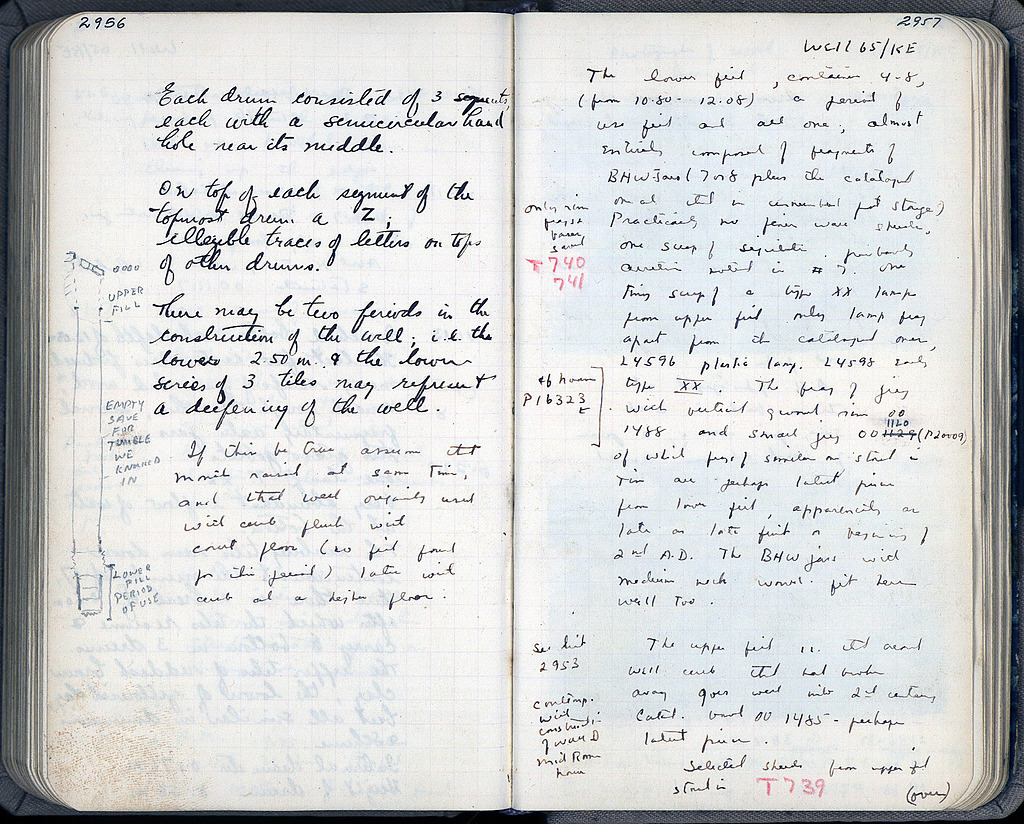 2956
Each drum consisted of 3 segments,
each with a semicircular hand
hole near its middle.
On top of each segment of the
topmost drum a Z;
illegible traces of letters on tops
of other drums.
There may be two periods in the
construction of the well; i.e. the
lowers 2.50 m. & the lower
series of 3 tiles may represent
a deepening of the well.
If this be true assume that
mouth raised at same time,
and that well originally used
with curb flush with
court floor (no fill found
for this period) later with
curb at a higher floor.
0000
UPPER
FILL
EMPTY
SAVE
FOR
TUMBLE
WE
KNOCKED
IN
LOWER
FILL
PERIOD
OF USE
2957
Well 65/KE
The lower fill, container 4-8,
(from 10.80 - 12.08) a period of
use fill and all one, almost
entirely composed of fragments of
BHW Jars (7 or 8 plus the cataloged
one all that in storage)
Practically no finer ware sherds,
one scrap of sigillata, probably
noted in #7. One
tiny scrap of a type XX lamp
from upper fill only lamp frag
apart from the cataloged ones,
L4596 plastic lamp. L4598 early
type XX. The frag of grey
with vertical grooved rim 00
1488 and small grey 00 1129 1120 (P20009)
of which frags of similar on strut in
tin are perhaps latest piece
from lower fill, apparently as
late as late first or beginning of
2nd A.D. The BHW jars with
medium neck would fit here
well too.
only rim
frags
saved
T 740
741
P16323
The upper fill ie. that around
well curb that had broken
away goes well into 2nd century
Catal. 00 1485 - perhaps
latest piece.
Selected sherds from upper fill
strut in T 739
(over)
see list
2953
contemp.
with
construct.
of
Mid Rom
house